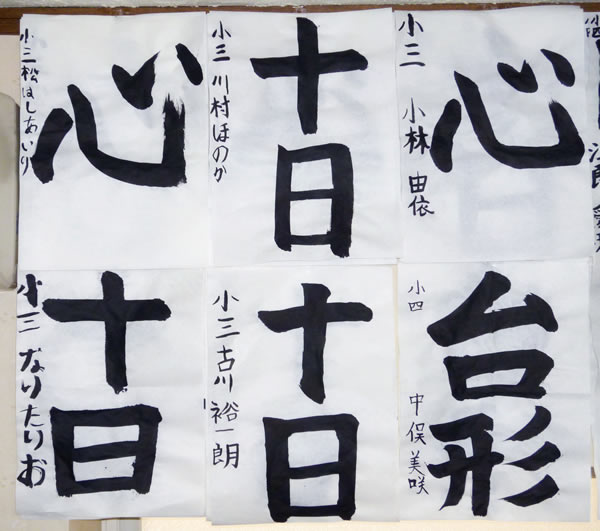 心
小三 松はしあいり
十日
小三 川村ほのか
心
小三 小林由依
十日
小三 なりたりお
十日
小三 古川裕一朗
台形
小四 中俣美咲
小四